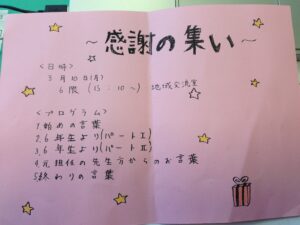 ～感謝の集い～
<日時>
3月10日(月)
6限(15:10～) 地域交流室
<プログラム>
1.始めの言葉
2.6年生より(パートⅠ)
3.6年生より(パートⅡ)
4.元担任の先生方からのお言葉
5.終わりの言葉